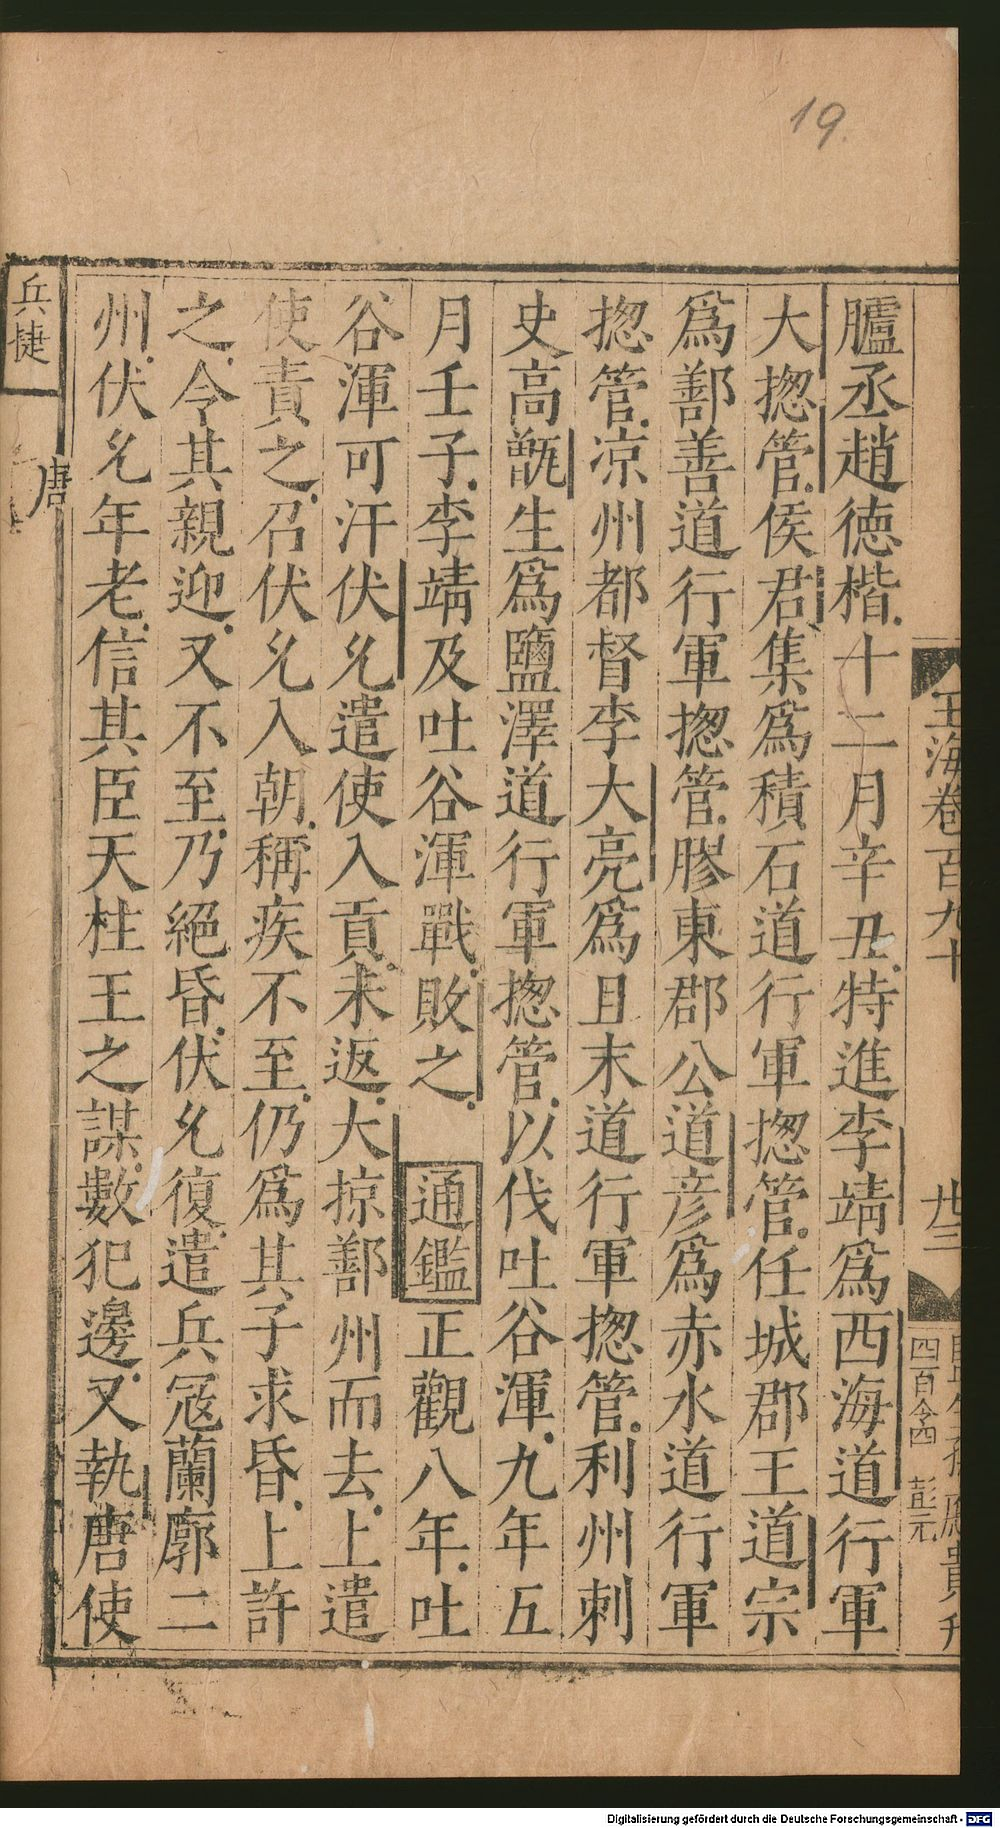 19.
玉海卷百九十
廿三
四百令四 彭元
臚丞趙德楷十二月辛丑特進李靖爲西海道行軍
大揔管侯君集爲積石道行軍揔管任城郡王道宗
爲鄯善道行軍揔管膠東郡公道彦爲赤水道行軍
揔管凉州都督李大亮爲且末道行軍揔管利州刺
史高甑生爲鹽澤道行軍揔管以伐吐谷渾九年五
月壬子李靖及吐谷渾戰敗之 通鑑正觀八年吐
谷渾可汗伏允遣使入貢未返大掠鄯州而去上遣
使責之召伏允入朝稱疾不至仍爲其子求昏上許
之令其親迎又不至乃絕昏伏允復遣兵寇蘭廓二
州伏允年老信其臣天柱王之謀數犯邊又執唐使
兵捷
唐
Digitalisierung gefördert durch die Deutsche Forschungsgemeinschaft - DFG